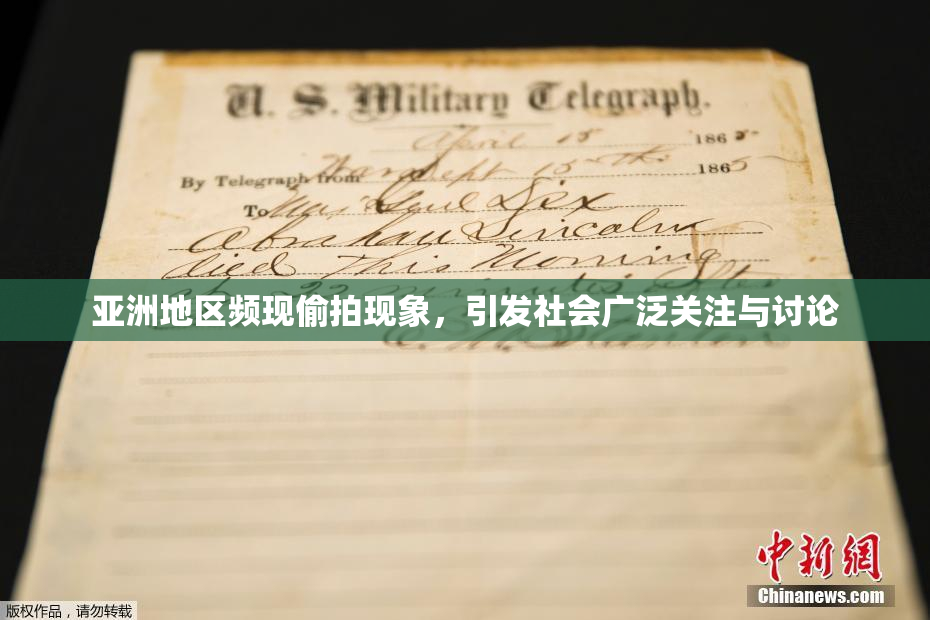 U. S. Military Telegraph.
April 15 1865
By Telegraph from War Dept 15th 1865
To Maj Genl Dix
Abraham Lincoln
died This Morning
at 22 minutes after
亚洲地区频现偷拍现象，引发社会广泛关注与讨论
E. M. Stanton
中新网
Chinanews.com
版权作品，请勿转载